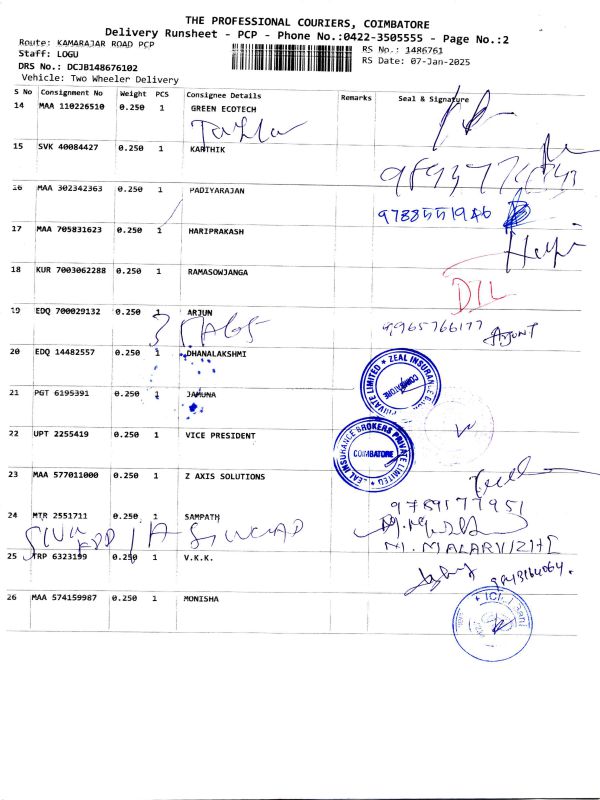 THE PROFESSIONAL COURIERS, COIMBATORE
Delivery Runsheet - PCP - Phone No.:0422-3505555 - Page No.:2
Route: KAMARAJAR ROAD PCP
RS No.: 1486761
Staff: LOGU
RS Date: 07-Jan-2025
DRS No.: DCJB148676102
Vehicle: Two Wheeler Delivery
S No Consignment No Weight PCS Consignee Details Remarks Seal & Signature
14 MAA 110226510 0.250 1 GREEN ECOTECH
15 SVK 40084427 0.250 1 KARTHIK
16 MAA 302342363 0.250 1 PADIYARAJAN
9788551946
17 MAA 705831623 0.250 1 HARIPRAKASH
18 KUR 7003062288 0.250 1 RAMASOWJANGA
DIL
19 EDQ 700029132 0.250 1 ARJUN
9965766177
20 EDQ 14482557 0.250 1 DHANALAKSHMI
ZEAL INSURANCE BROKERS PRIVATE LIMITED
COIMBATORE
21 PGT 6195391 0.250 1 JAMUNA
22 UPT 2255419 0.250 1 VICE PRESIDENT
ZEAL INSURANCE BROKERS PRIVATE LIMITED
COIMBATORE
23 MAA 577011000 0.250 1 Z AXIS SOLUTIONS
9789577951
24 MTR 2551711 0.250 1 SAMPATH
M. MALARVIZHI
25 TRP 6323199 0.250 1 V.K.K.
26 MAA 574159987 0.250 1 MONISHA